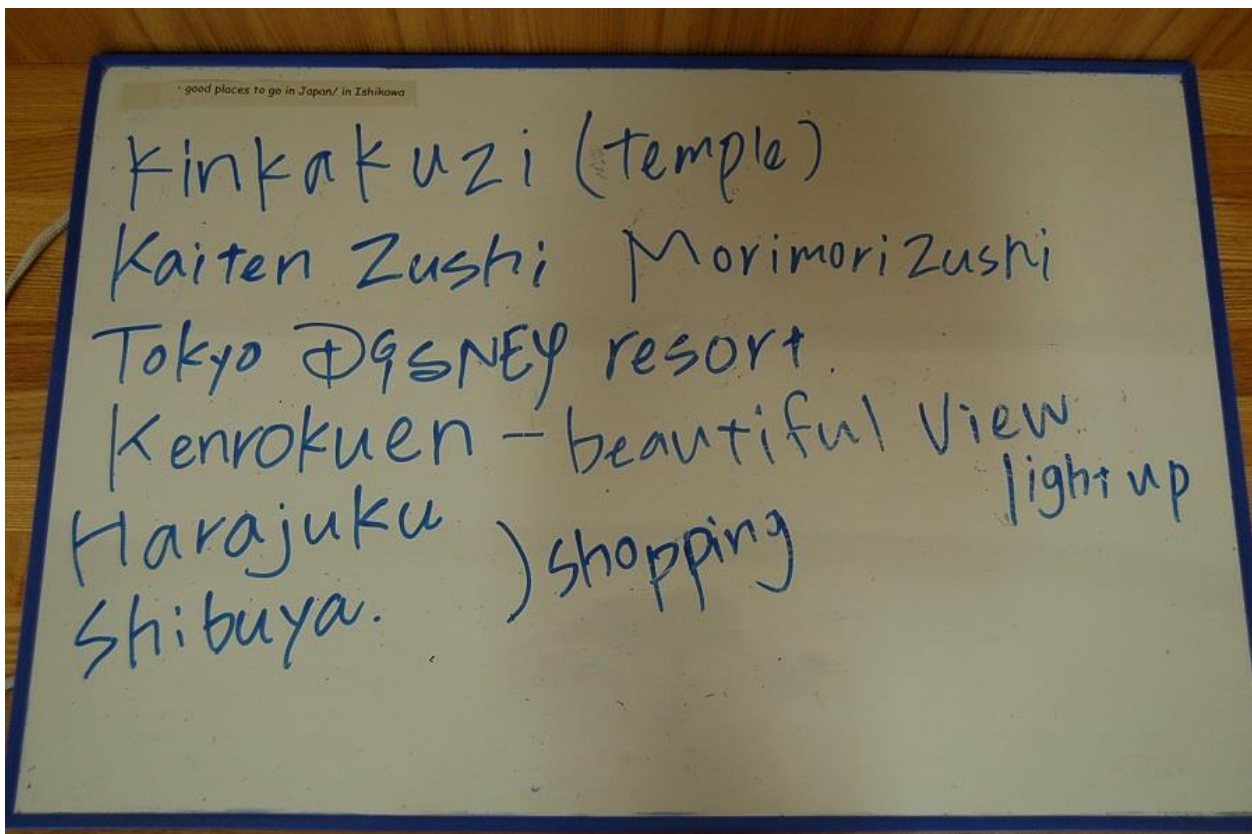 · good places to go in Japan/ in Ishikawa
Kinkakuzi (temple)
Kaiten Zushi Morimori Zushi
Tokyo DiSNEY resort.
Kenrokuen - beautiful View
light up
Harajuku
Shibuya. ) shopping